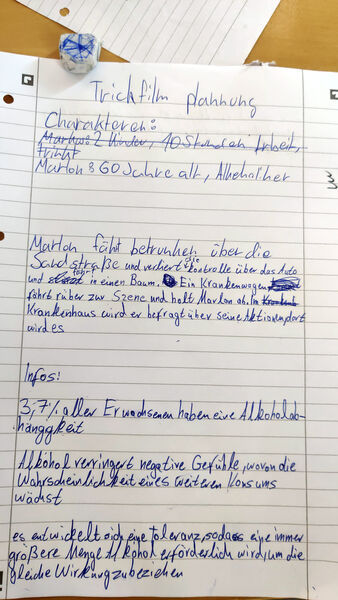 Trickfilm plannung
Charakteren:
Markus: 2 Kinder, 40 Stunden Arbeit,
trinkt
Marlon: 60 Jahre alt, Alkeholiker
Marlon fährt betrunken über die
Sandstraße und verliert die kontrolle über das Auto
und fährt in einen Baum. Ein Krankenwagen
fährt rüber zur Szene und holt Marlon ab. Im
Krankenhaus wird er befragt über seine Aktionen, dort
wird es
Infos:
3,7% aller Erwachsenen haben eine Alkoholab-
hänggkeit
Alkohol verringert negative Gefühle, wovon die
Wahrscheinlichkeit eines weiteren Konsums
wächst
es entwickelt sich eine Toleranz, sodass eine immer
größere Menge Alkohol erforderlich wird, um die
gleiche Wirkung zu beziehen